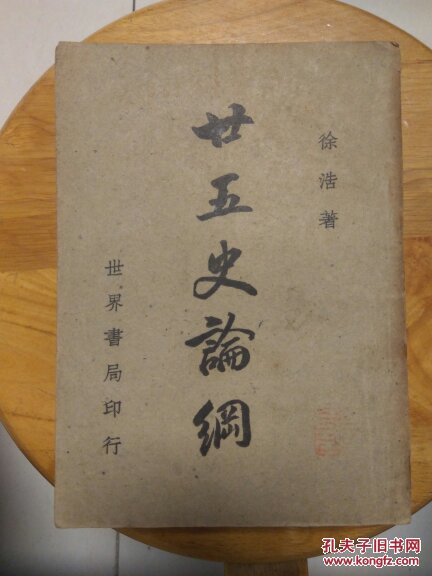 徐浩著
廿五史論綱
世界書局印行
孔夫子旧书网
www.kongfz.com